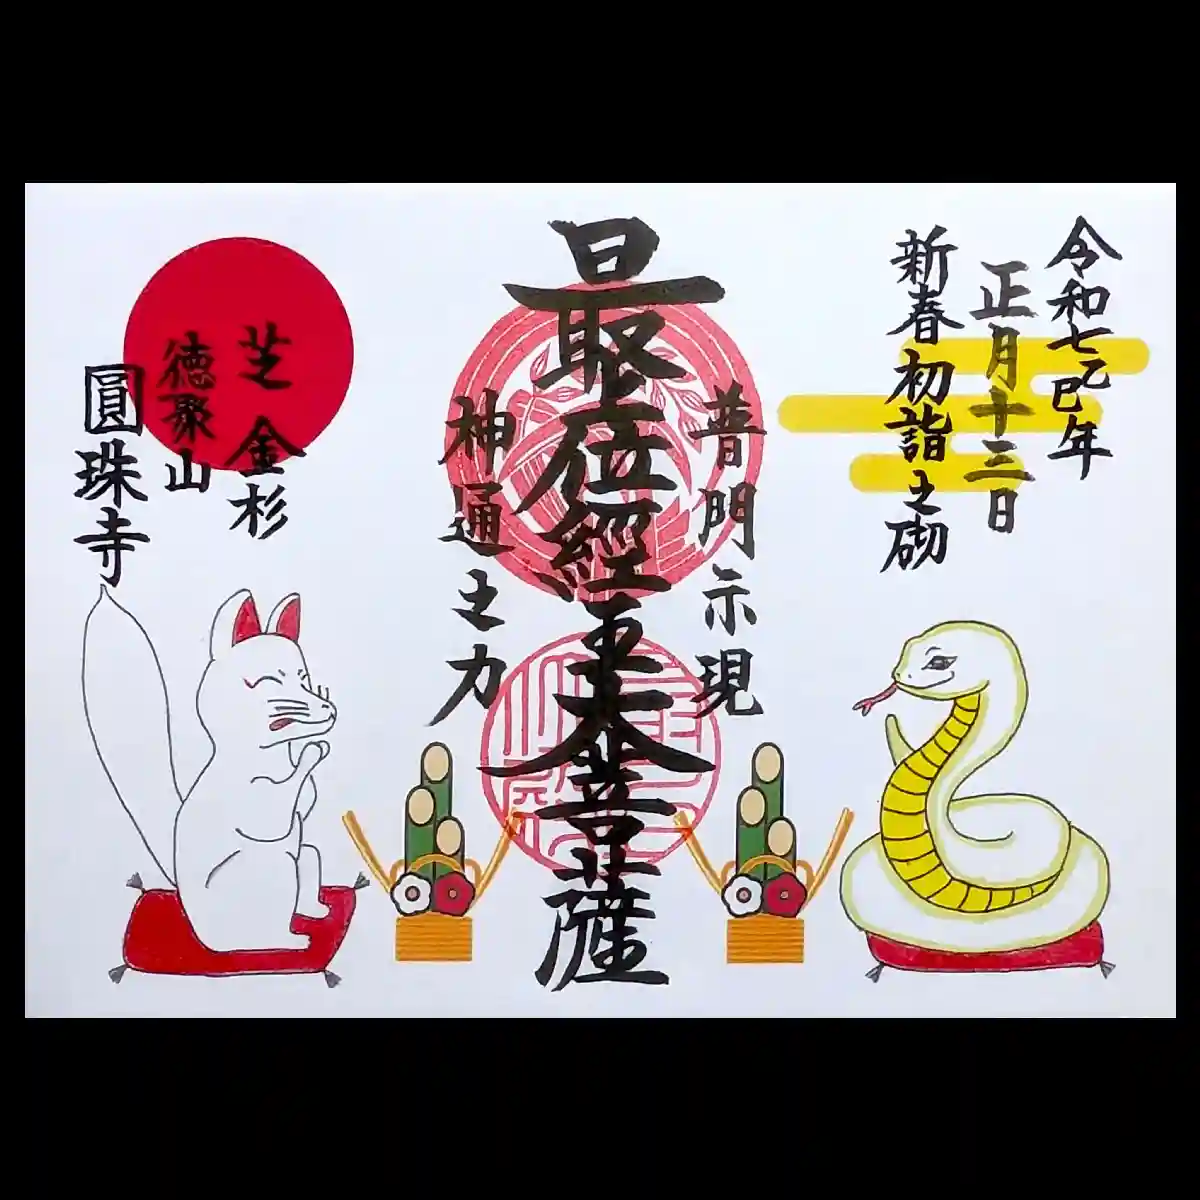 令和七乙巳年
正月十三日
新春初詣之砌
普門示現
最位經王大菩薩
神通之力
芝金杉
徳聚山
圓珠寺